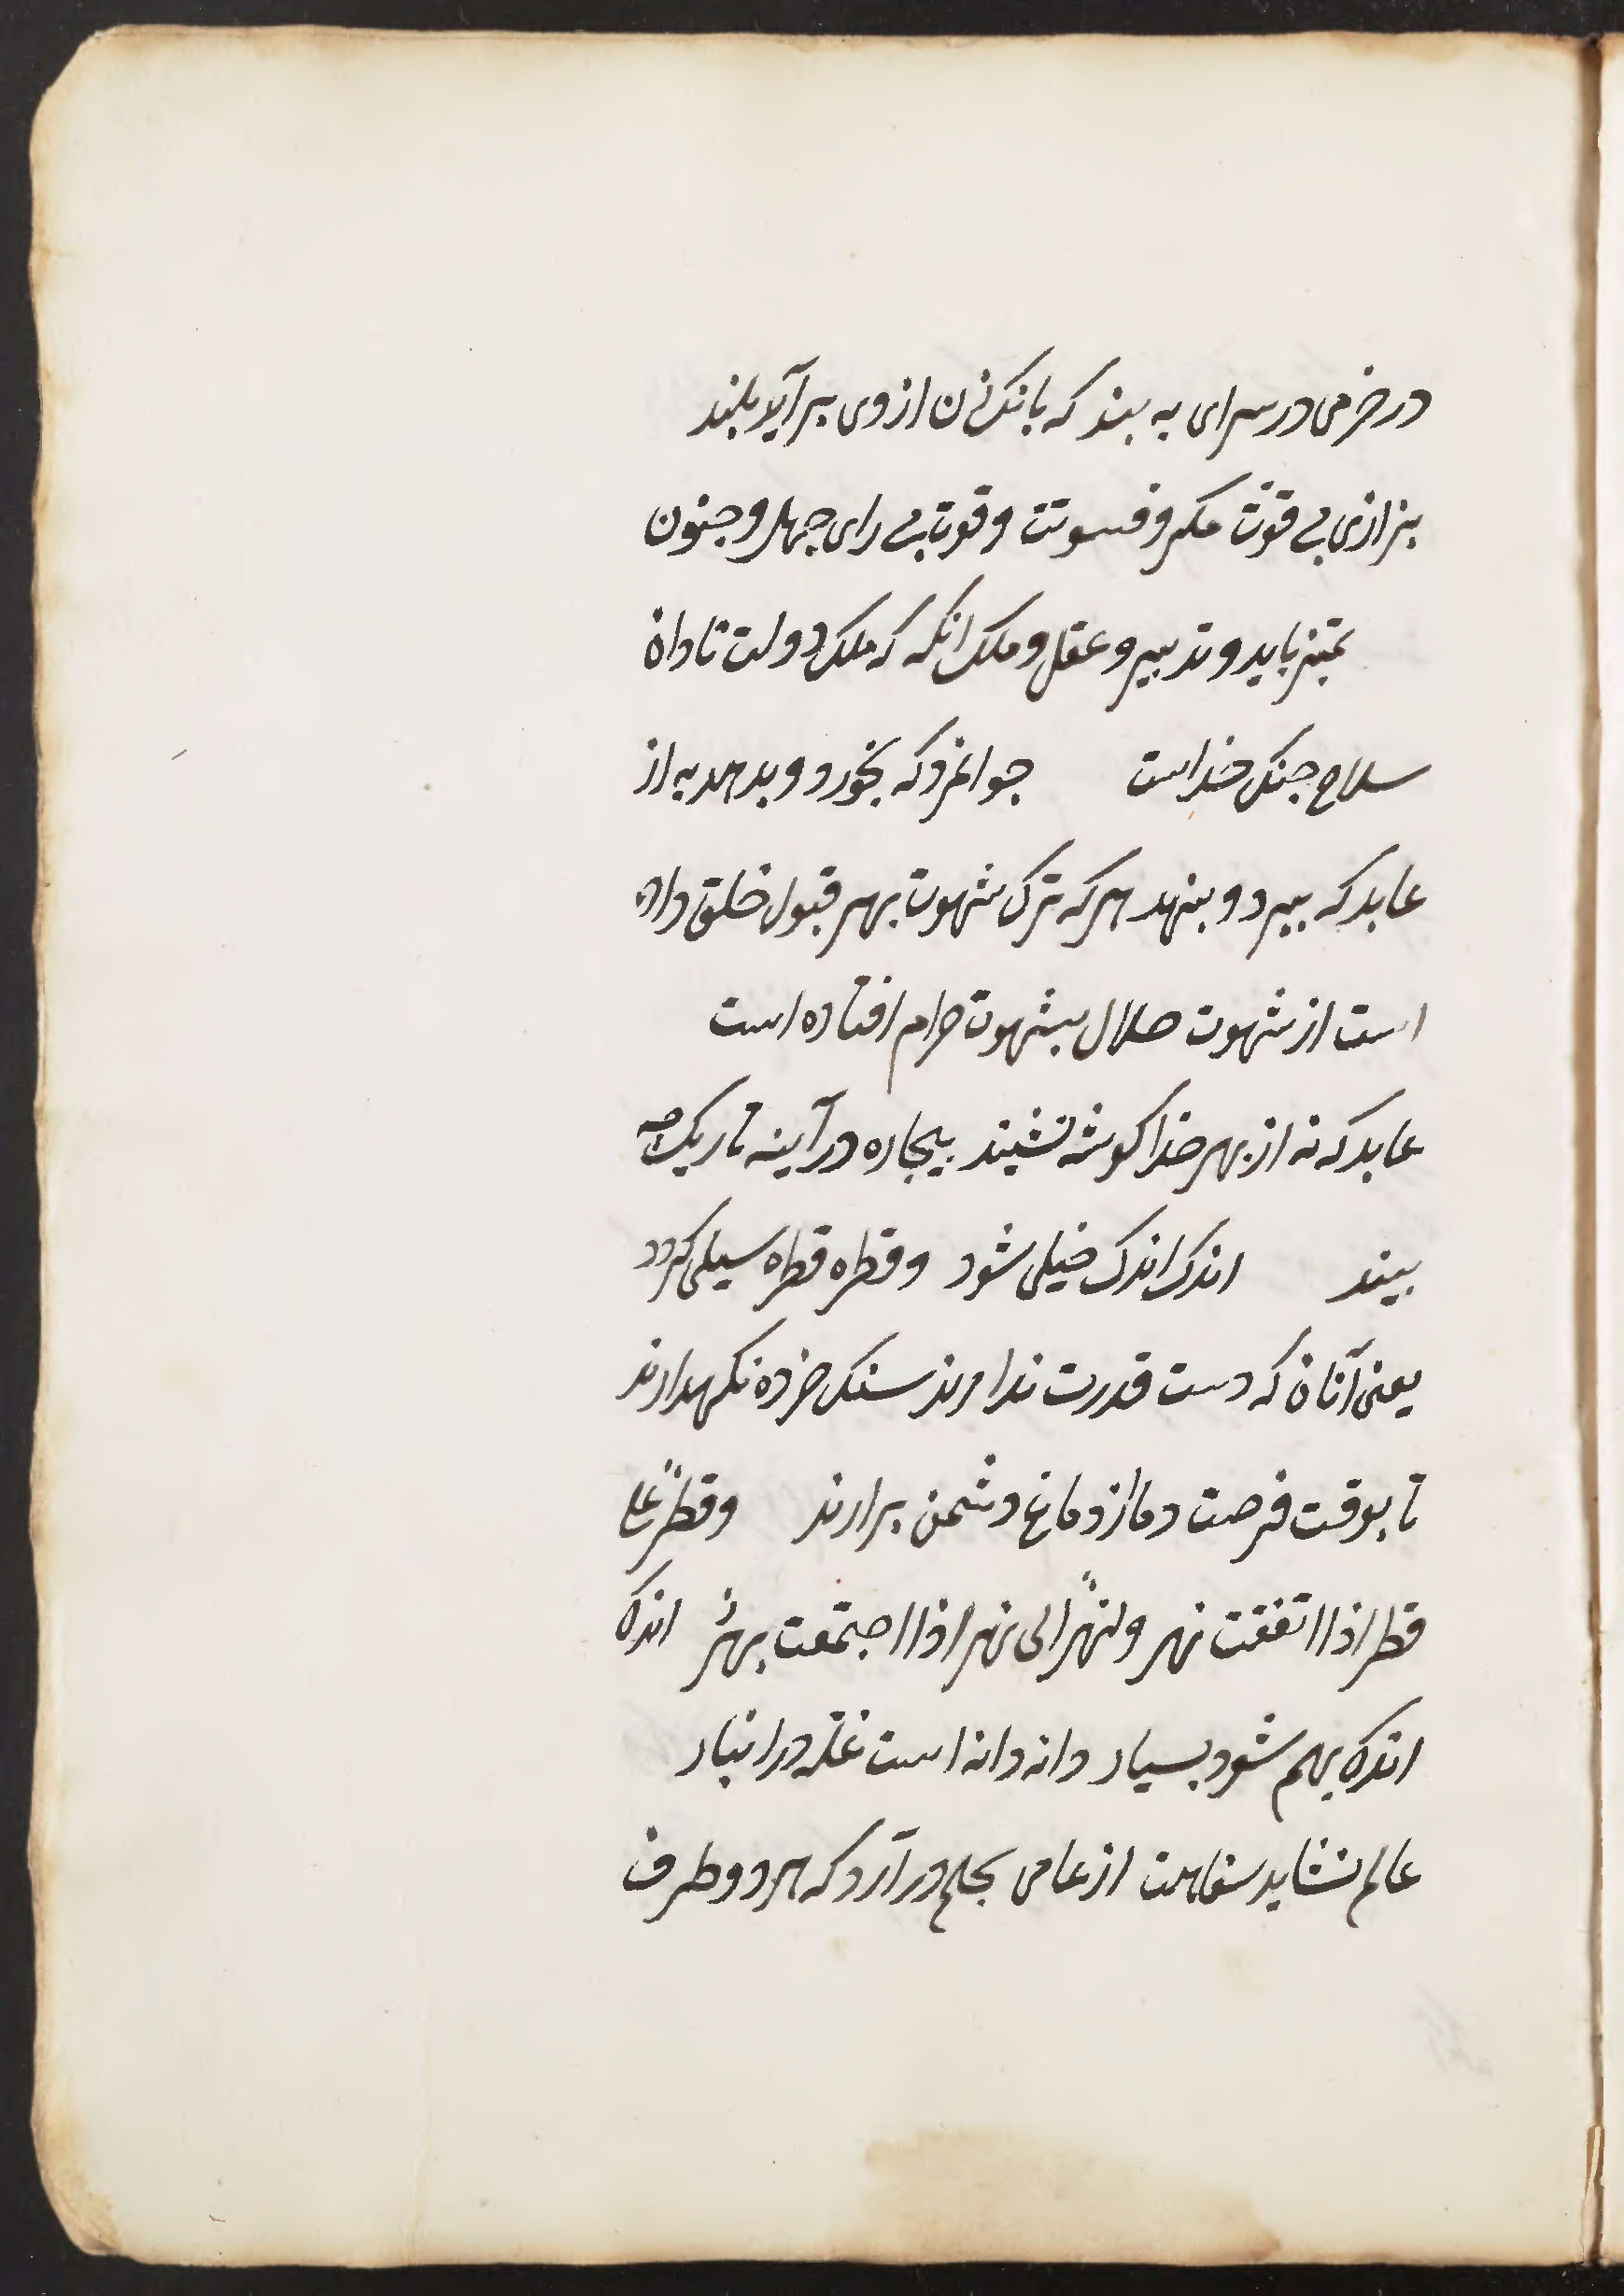 در خرمی در سرای به بند که بانک زن از وی برآید بلند
بزازی بی قوت مکر و فسونت و قوت بی رای جهل و جنون
تمیز باید و تدبیر و عقل و ملک انکه که ملک دولت نادان
سلاح جنک خداست جوانمرد که بخورد و بدهد به از
عابد که ببرد و بنهد هر که ترک شهوت بهر قبول خلق داده
است از شهوت حلال بشهوت حرام افتاده است
عابد که نه از بهر خدا کوشه نشیند بیچاره در آینه تاریک چه
بیند اندک اندک خیلی شود و قطره قطره سیلی گردد
یعنی آنان که دست قدرت ندارند سنک خرده نکهدارند
تا بوقت فرصت دمار از دماغ دشمن برارند وقطر علی
قطر اذا اتفقت نهر ونهر الی نهر اذا اجتمعت بهر اندک
اندک بهم شود بسیار دانه دانه است غله در انبار
عالم نشاید سفاهت از عامی بحلم در آرد که هر دو طرف